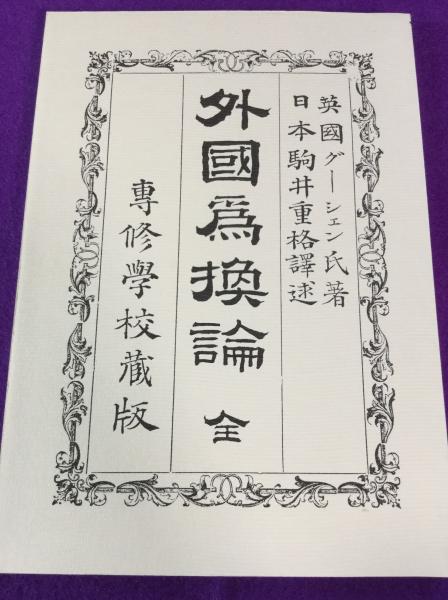 英國グーシェン氏著
日本駒井重格譯述
外國爲換論 全
專修學校藏版